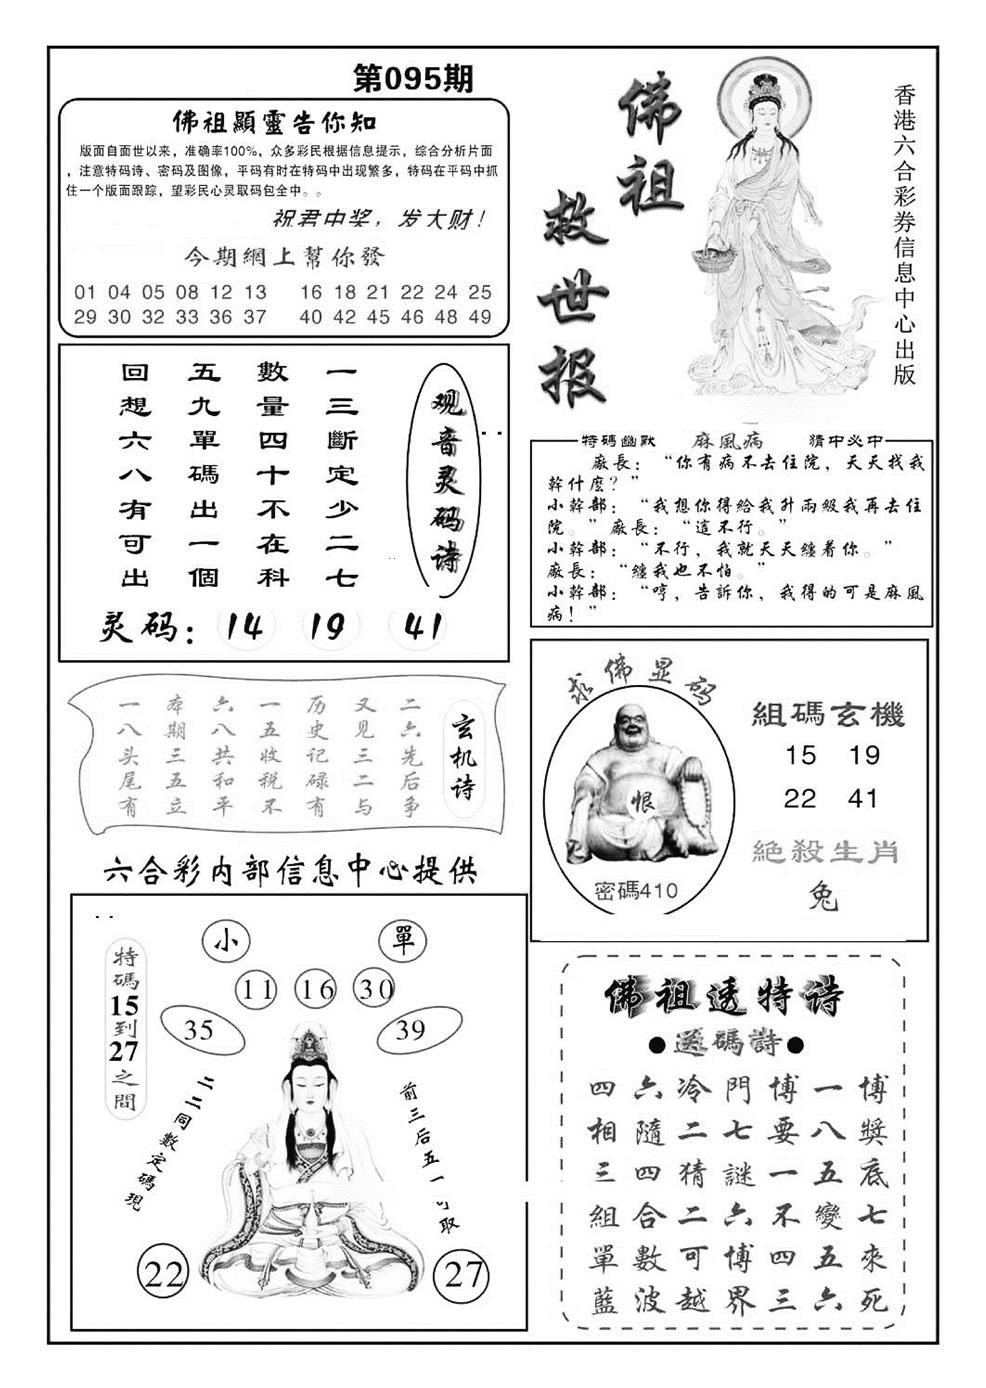 第095期
佛祖顯靈告你知
版面自面世以来，准确率100%，众多彩民根据信息提示，综合分析片面
，注意特码诗、密码及图像，平码有时在特码中出现繁多，特码在平码中抓
住一个版面跟踪，望彩民心灵取码包全中。。
祝君中奖，发大财！
今期網上幫你發
01 04 05 08 12 13 16 18 21 22 24 25
29 30 32 33 36 37 40 42 45 46 48 49
佛祖
救世报
香港六合彩券信息中心出版
观音灵码诗
一三斷定少二七
數量四十不在科
五九單碼出一個
回想六八有可出
灵码：14 19 41
特碼幽默 麻風病 猜中必中
廠長：“你有病不去住院，天天找我
幹什麼？”
小幹部：“我想你得給我升兩級我再去住
院。”廠長：“這不行。”
小幹部：“不行，我就天天纏着你。”
廠長：“纏我也不怕。”
小幹部：“哼，告訴你，我得的可是麻風
病！”
玄机诗
二六先后争
又见三二与
历史记碌有
一五收税不
六八共和平
本期三五立
一八头尾有
求佛显码
恨
密碼410
組碼玄機
15 19
22 41
絕殺生肖
兔
六合彩内部信息中心提供
小 單
11 16 30
35 39
特碼15到27之間
二二同數定碼現
前三后五一可取
22 27
佛祖透特诗
●送碼詩●
博獎底七來死
一八五變五六
博要一不四三
門七謎六博界
冷二猜二可越
六隨四合數波
四相三組單藍